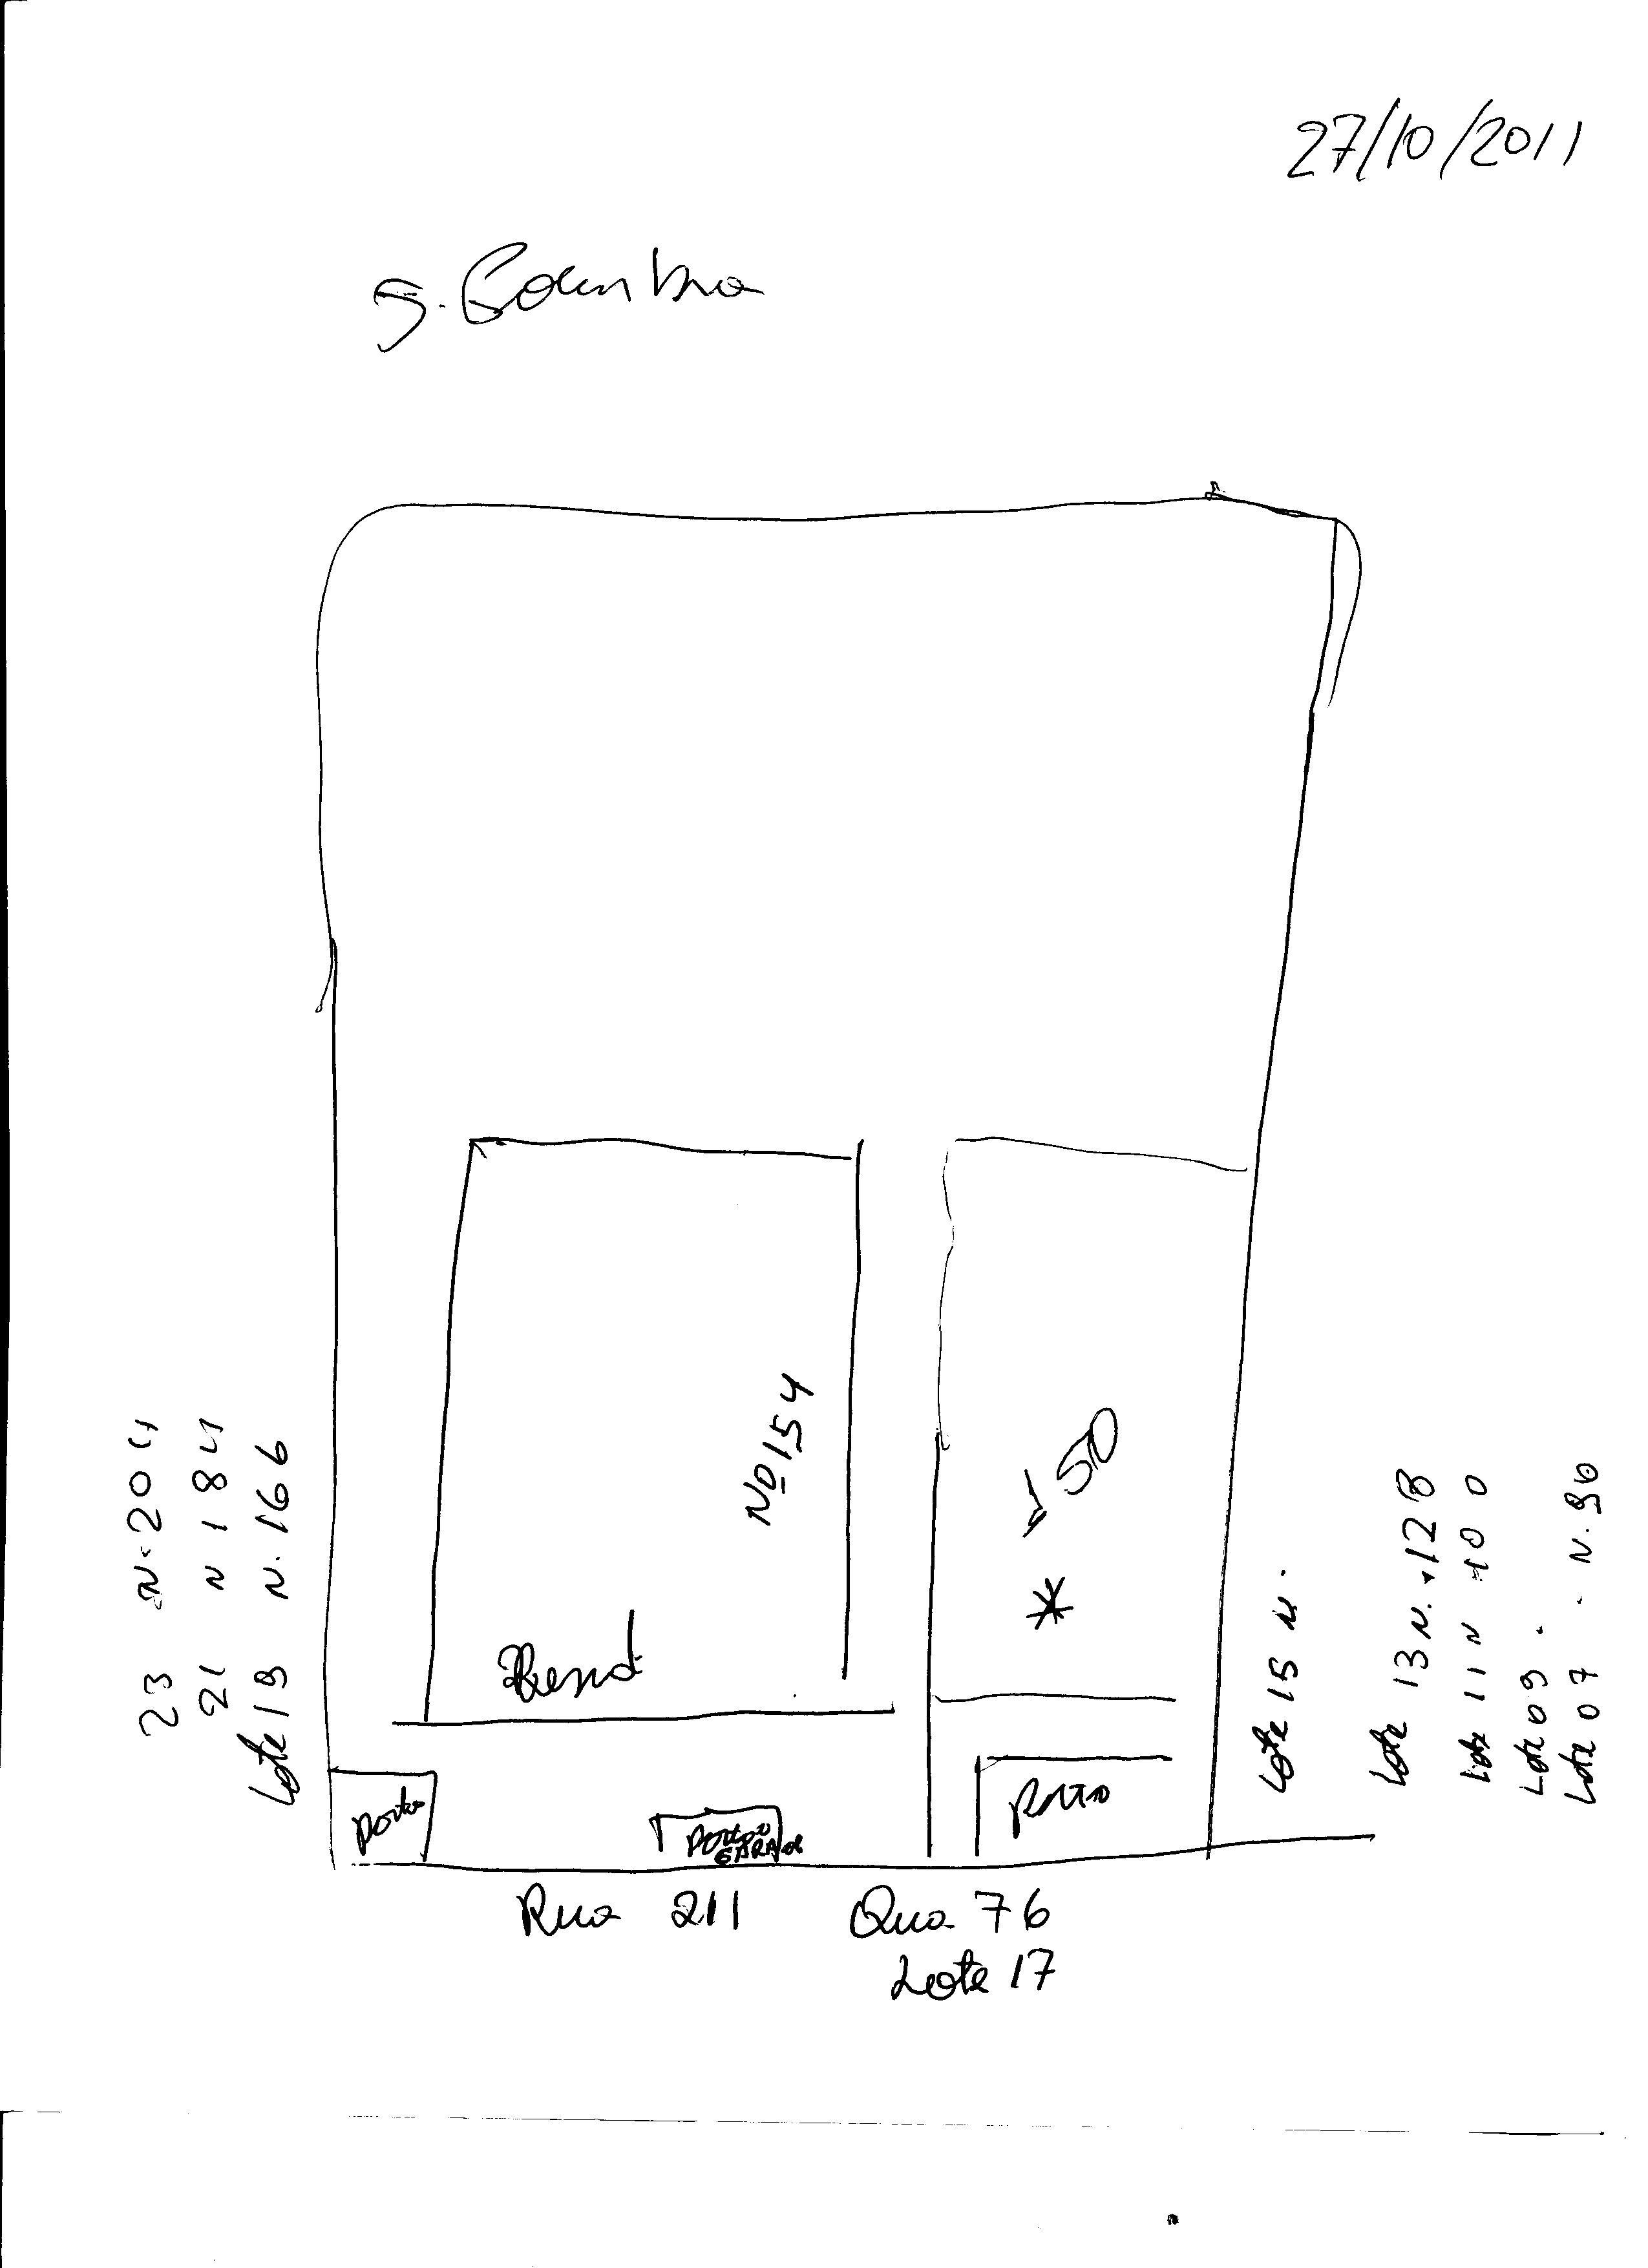 27/10/2011
23 N. 204
21 N 184
Lote 19 N. 166
No 154
Resid
150
*
Lote 15 N.
Lote 13 N. 128
Lote 11 N 100
Lote 09 .
Lote 07 . N. 90
Portão
GARAGE
Rua 211 Qua 76
Lote 17